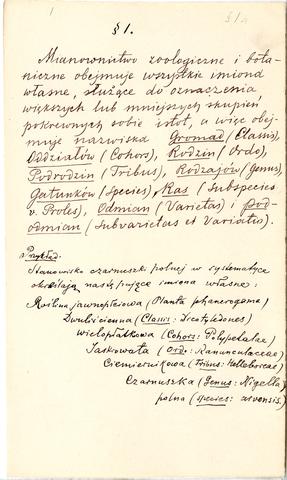 1
§ 1.
§ 1a
Mianownictwo zoologiczne i bota-
niczne obejmuje wszystkie imiona
własne, służące do oznaczenia
większych lub mniejszych skupień
pokrewnych sobie istot, a więc obej-
muje nazwiska Gromad (Classis),
Oddziałów (Cohors), Rodzin (Ordo),
Podrodzin (Tribus), Rodzajów (Genus),
Gatunków (Species), Ras (Subspecies
v. Proles), Odmian (Varietas) i Pod-
odmian (Subvarietas et Variatio).
Przykład.
Stanowisko czarnuszki polnej w systematyce
określają następujące imiona własne:
Roślina jawnopłciowa (Planta phanerogama)
Dwuliścienna (Classis: Dicotyledones)
wielopłatkowa (Cohors: Polypetalae)
Jaskrowata (Ordo: Ranunculaceae)
Ciemiernikowa (Tribus: Helleboreae)
Czarnuszka (Genus: Nigella)
polna (species: arvensis)